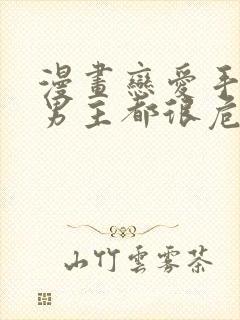 漫畫戀愛手
男主都很危
山竹雲霧茶